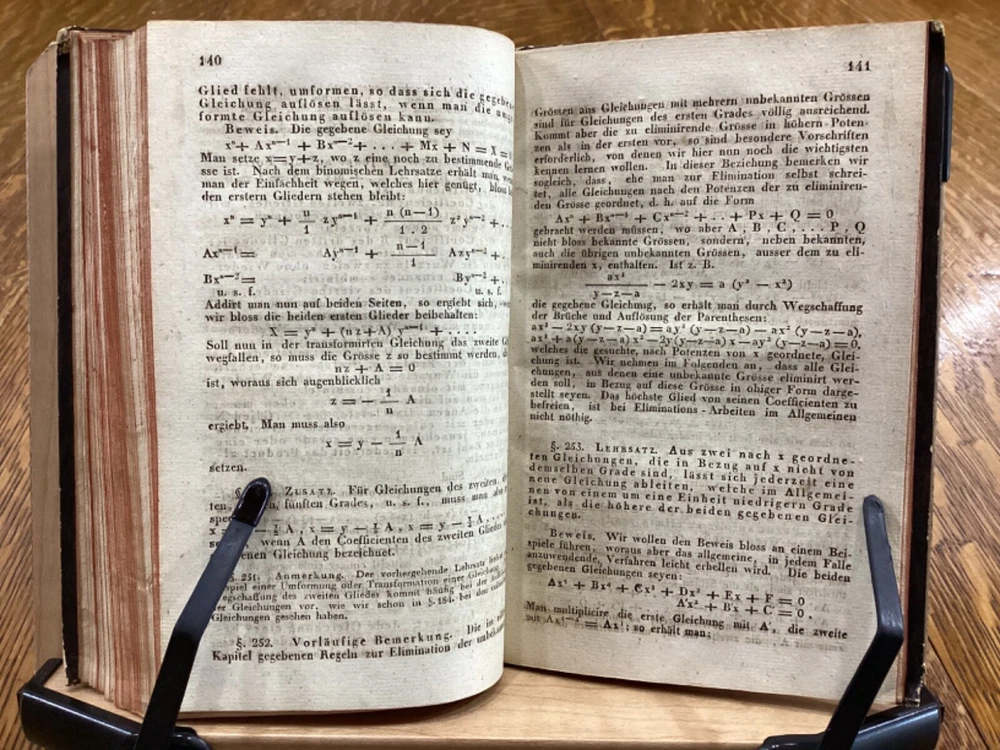 140
Glied fehlt, umformen, so dass sich die gegebe
Gleichung auflösen lässt, wenn man die
formte Gleichung auflösen kann.
Beweis. Die gegebene Gleichung sey
xⁿ + Axⁿ⁻¹ + Bxⁿ⁻² + . . . + Mx + N = X = 0
Man setze x = y + z, wo z eine noch zu bestimmende
sse ist. Nach dem binomischen Lehrsatze erhält man,
man der Einfachheit wegen, welches hier genügt, bloss
den erstern Gliedern stehen bleibt:
xⁿ = yⁿ + n/1 zyⁿ⁻¹ + n (n—1)/1 . 2 z²yⁿ⁻² + . .
Axⁿ⁻¹ = Ayⁿ⁻¹ + n—1/1 Azyⁿ⁻² + .
Bxⁿ⁻² = Byⁿ⁻² + .
u. s. f. u. s. f.
Addirt man nun auf beiden Seiten, so ergiebt sich,
wir bloss die beiden ersten Glieder beibehalten:
X = yⁿ + (nz + A) yⁿ⁻¹ + . . . .
Soll nun in der transformirten Gleichung das zweite
wegfallen, so muss die Grösse z so bestimmt werden,
nz + A = 0
ist, woraus sich augenblicklich
z = — 1/n A
ergiebt. Man muss also
x = y — 1/n A
setzen.
§. Zusatz. Für Gleichungen des zweiten,
ten, fünften Grades, u. s. f., muss man also
A, x = y — ⅓ A, x = y — ¼ A, . . .
wenn A den Coefficienten des zweiten Gliedes
enen Gleichung bezeichnet.
§. 251. Anmerkung. Der vorhergehende Lehrsatz
spiel einer Umformung oder Transformation einer Gleichung.
egschaffung des zweiten Gliedes kommt häufig bei der
der Gleichungen vor, wie wir schon in §. 184. bei den
Gleichungen gesehen haben.
§. 252. Vorläufige Bemerkung. Die im
Kapitel gegebenen Regeln zur Elimination der unbek
141
Grössen aus Gleichungen mit mehrern unbekannten Grössen
sind für Gleichungen des ersten Grades völlig ausreichend.
Kommt aber die zu eliminirende Grösse in höhern Poten-
zen als in der ersten vor, so sind besondere Vorschriften
erforderlich, von denen wir hier nun noch die wichtigsten
kennen lernen wollen. In dieser Beziehung bemerken wir
sogleich, dass, ehe man zur Elimination selbst schrei-
tet, alle Gleichungen nach den Potenzen der zu eliminiren-
den Grösse geordnet, d. h. auf die Form
Axⁿ + Bxⁿ⁻¹ + Cxⁿ⁻² + . . + Px + Q = 0
gebracht werden müssen, wo aber A, B, C, . . . P, Q
nicht bloss bekannte Grössen, sondern, neben bekannten,
auch die übrigen unbekannten Grössen, ausser dem zu eli-
minirenden x, enthalten. Ist z. B.
ax³/y—z—a — 2xy = a (y² — x²)
die gegebene Gleichung, so erhält man durch Wegschaffung
der Brüche und Auflösung der Parenthesen:
ax³ — 2xy (y—z—a) = ay² (y—z—a) — ax² (y—z—a),
ax³ + a(y—z—a) x² — 2y(y—z—a) x — ay² (y—z—a) = 0,
welches die gesuchte, nach Potenzen von x geordnete, Glei-
chung ist. Wir nehmen im Folgenden an, dass alle Glei-
chungen, aus denen eine unbekannte Grösse eliminirt wer-
den soll, in Bezug auf diese Grösse in obiger Form darge-
stellt seyen. Das höchste Glied von seinen Coefficienten zu
befreien, ist bei Eliminations-Arbeiten im Allgemeinen
nicht nöthig.
§. 253. Lehrsatz. Aus zwei nach x geordne-
ten Gleichungen, die in Bezug auf x nicht von
demselben Grade sind, lässt sich jederzeit eine
neue Gleichung ableiten, welche im Allgemei-
nen von einem um eine Einheit niedrigern Grade
ist, als die höhere der beiden gegebenen Glei-
chungen.
Beweis. Wir wollen den Beweis bloss an einem Bei-
spiele führen, woraus aber das allgemeine, in jedem Falle
anzuwendende, Verfahren leicht erhellen wird. Die beiden
gegebenen Gleichungen seyen:
Ax⁵ + Bx⁴ + Cx³ + Dx² + Ex + F = 0
A'x² + B'x + C = 0.
Man multiplicire die erste Gleichung mit A', die zweite
mit = Ax³; so erhält man: